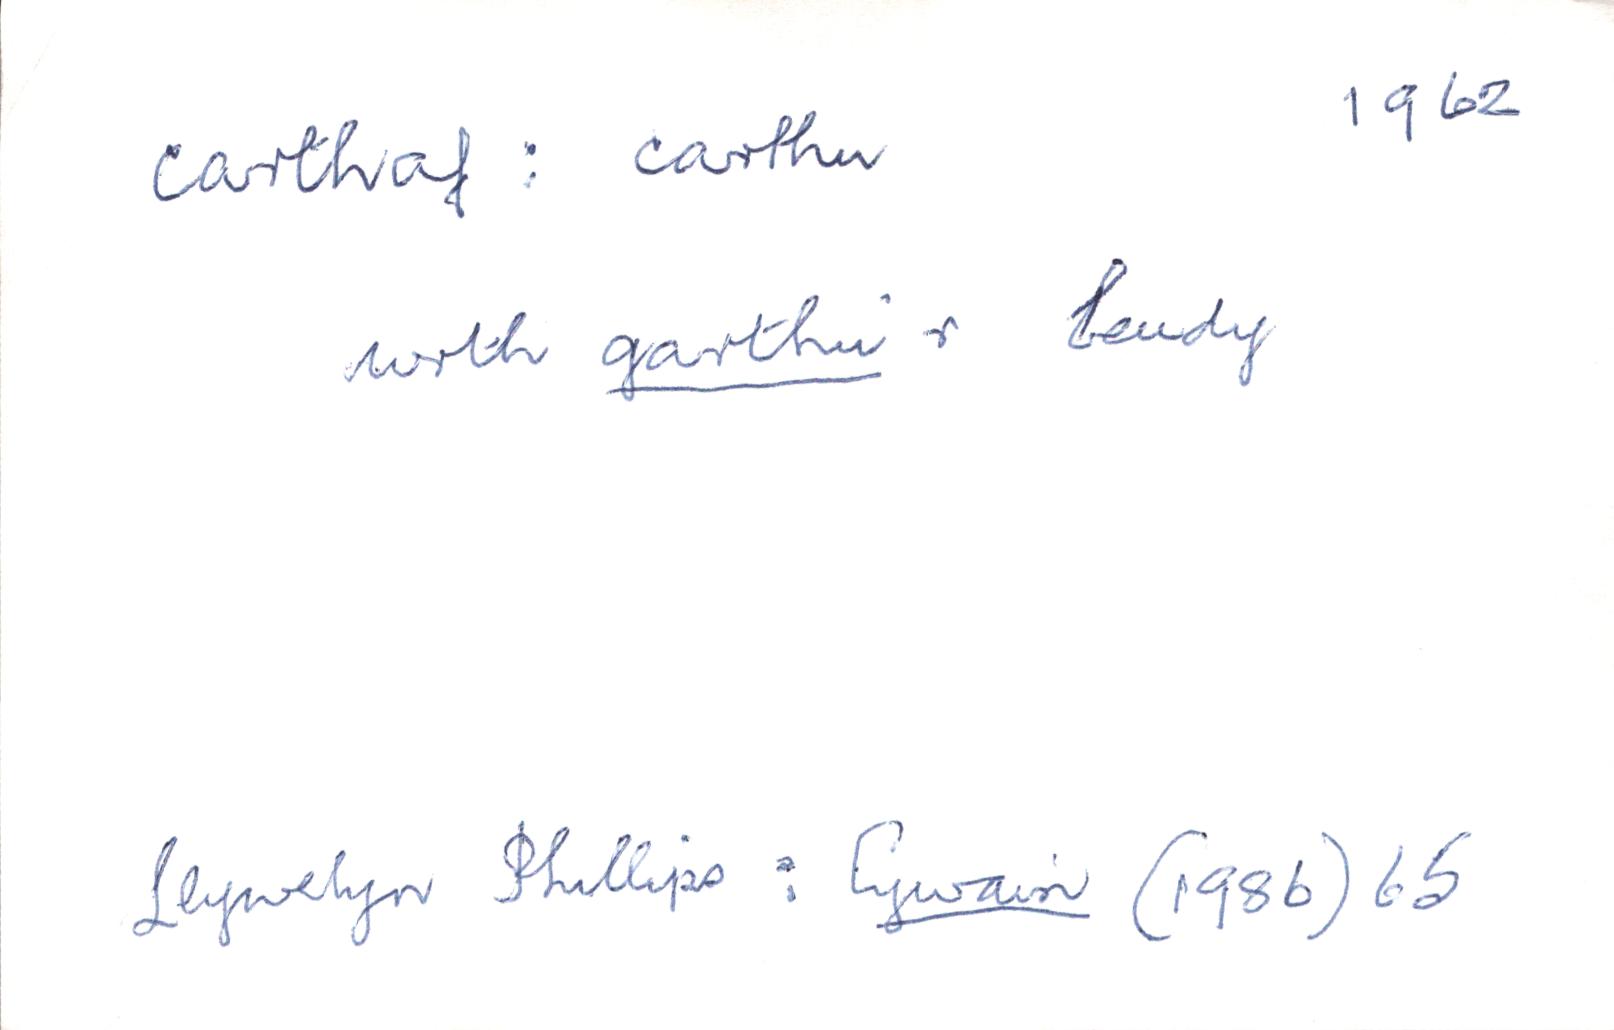 1962
carthaf : carthu
wrth garthu'r beudy
Llywelyn Phillips : Cywain (1986) 65